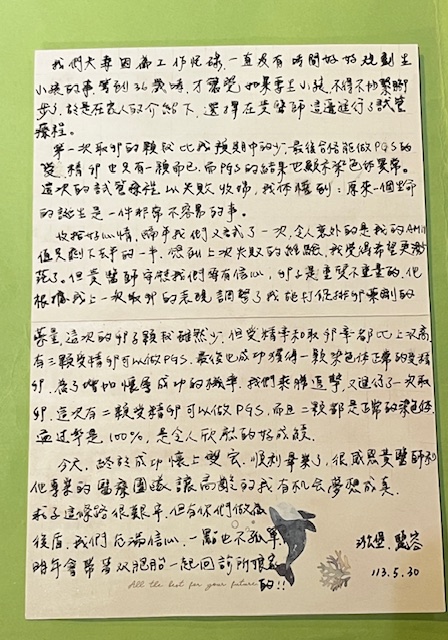 我們夫妻因為工作忙碌,一直沒有時間好好規劃生
小孩的事,等到36歲時,才驚覺如果要生小孩,不得不加緊腳
步了,於是在家人的介紹下,選擇在黃醫師這邊進行了試管
療程。
第一次取卵的顆數比我預期中的少,最後合格能做PGS的
受精卵也只有一顆而已,而PGS的結果也顯示染色體異常。
這次的試管療程以失敗收場,我體悟到:原來一個生命
的誕生是一件非常不容易的事。
收拾好心情,隔年我們又試了一次,令人意外的是我的AMH
值只剩下去年的一半,想到上次失敗的經驗,我覺得希望更渺
茫了。但黃醫師安慰我們要有信心,卵子是重質不重量的,他
根據我上一次取卵的表現調整了我施打促排卵藥劑的
藥量,這次的卵子顆數雖然少,但受精率和取卵率都比上次高,
有三顆受精卵可以做PGS,最後也成功獲得一顆染色體正常的受精
卵。為了增加懷孕成功的機率,我們乘勝追擊,又進行了一次取
卵,這次有二顆受精卵可以做PGS,而且二顆都是正常的染色體,
過率是100%,是令人欣慰的好成績。
今天,終於成功懷上雙宝,順利畢業了,很感恩黃醫師和
他專業的醫療團隊,讓高齡的我有机会夢想成真。
求子這條路很艱辛,但有你們做後
後盾,我們充滿信心,一點也不孤單,
明年會帶著双胞胎一起回診所
的!!
All the best for your future.
113.5.30